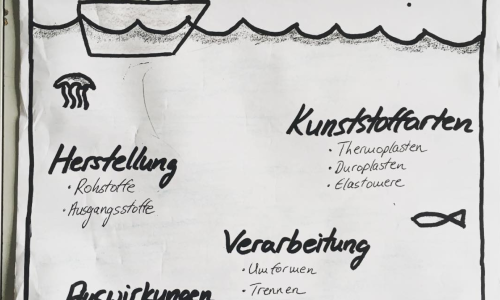 Kunststoffarten
• Thermoplasten
• Duroplasten
• Elastomere
Herstellung
• Rohstoffe
• Ausgangsstoffe
Verarbeitung
• Umformen
• Trennen
Auswirkungen